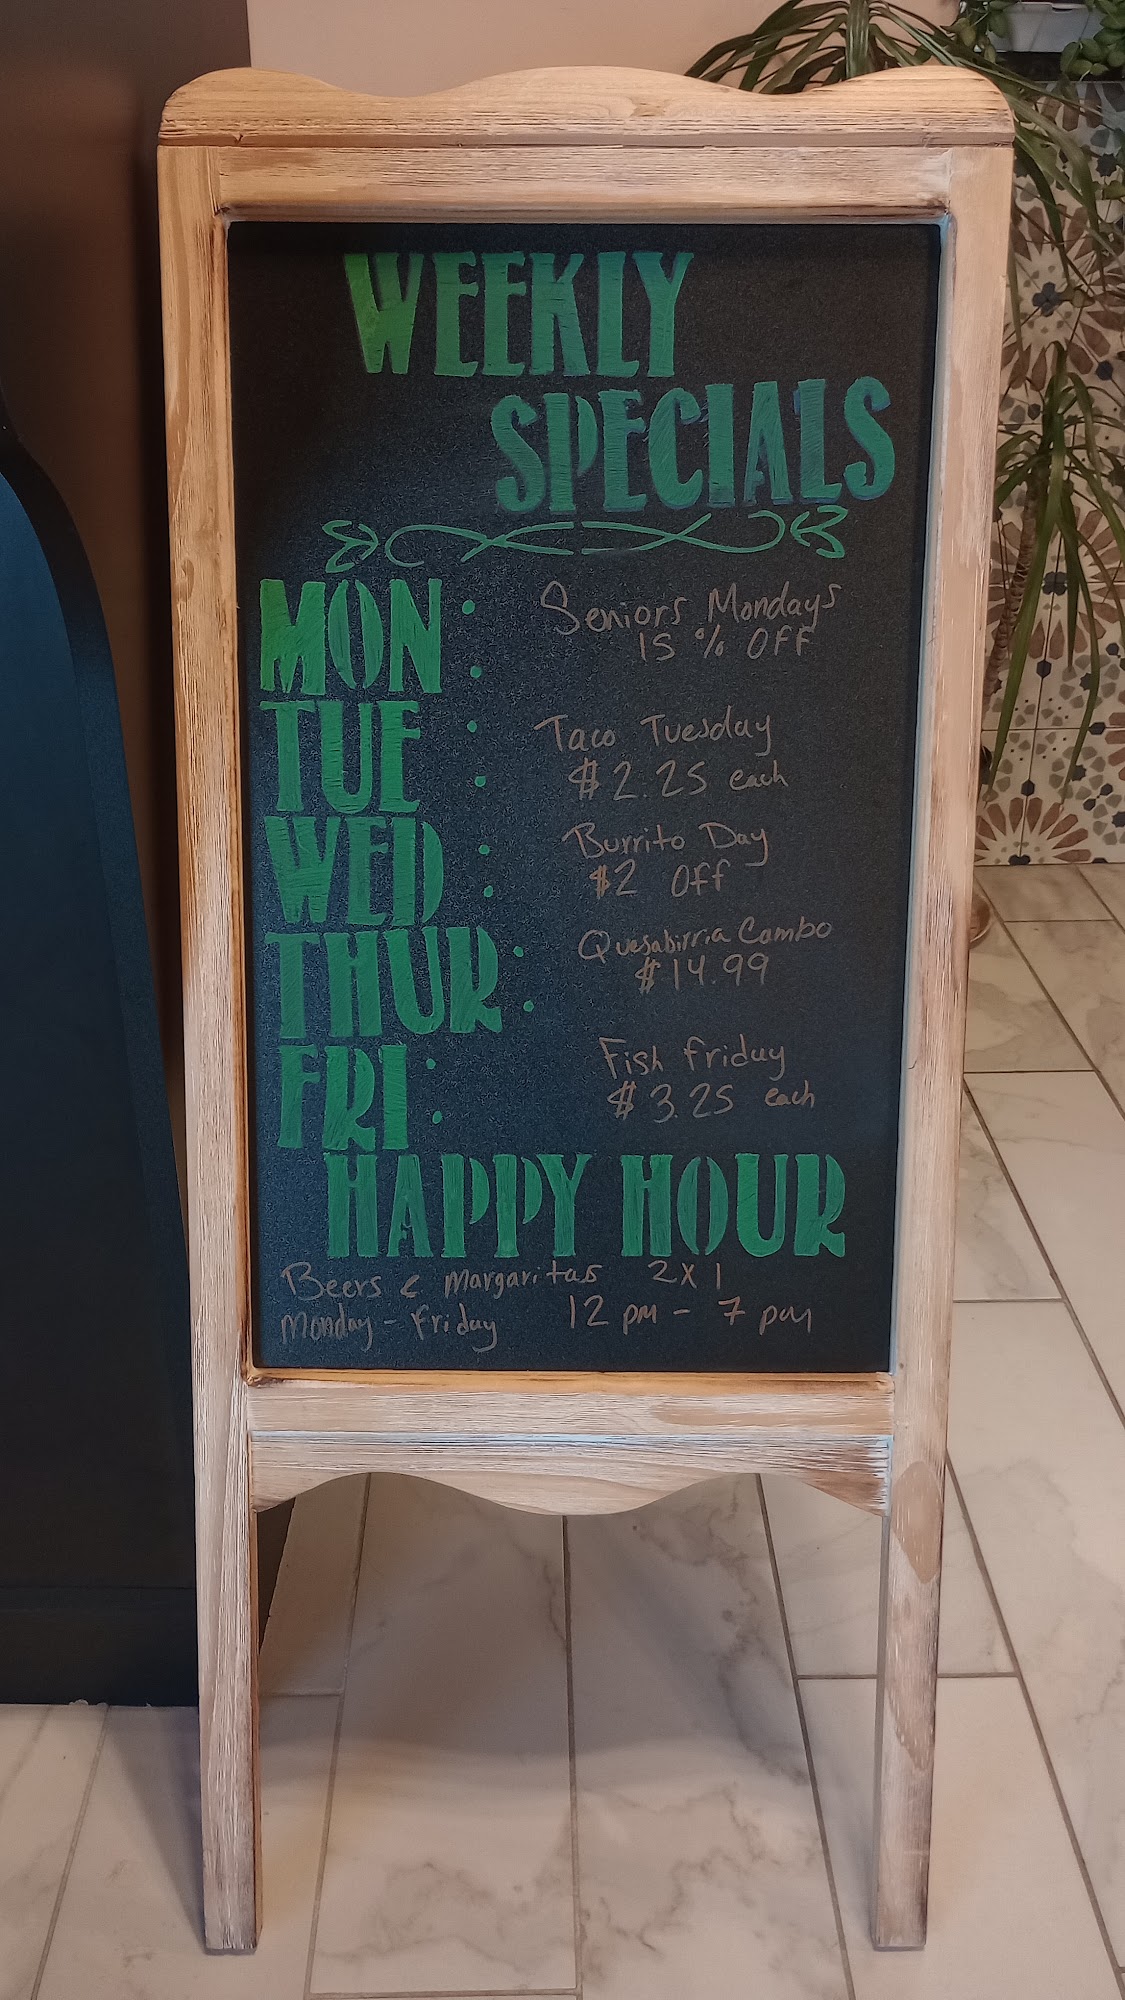 WEEKLY
SPECIALS
MON: Seniors Mondays
15 % OFF
TUE: Taco Tuesday
$2.25 each
WED: Burrito Day
$2 Off
THUR: Quesabirria Combo
$14.99
FRI: Fish friday
$3.25 each
HAPPY HOUR
Beers & Margaritas 2x1
Monday - Friday 12 pm - 7 pm